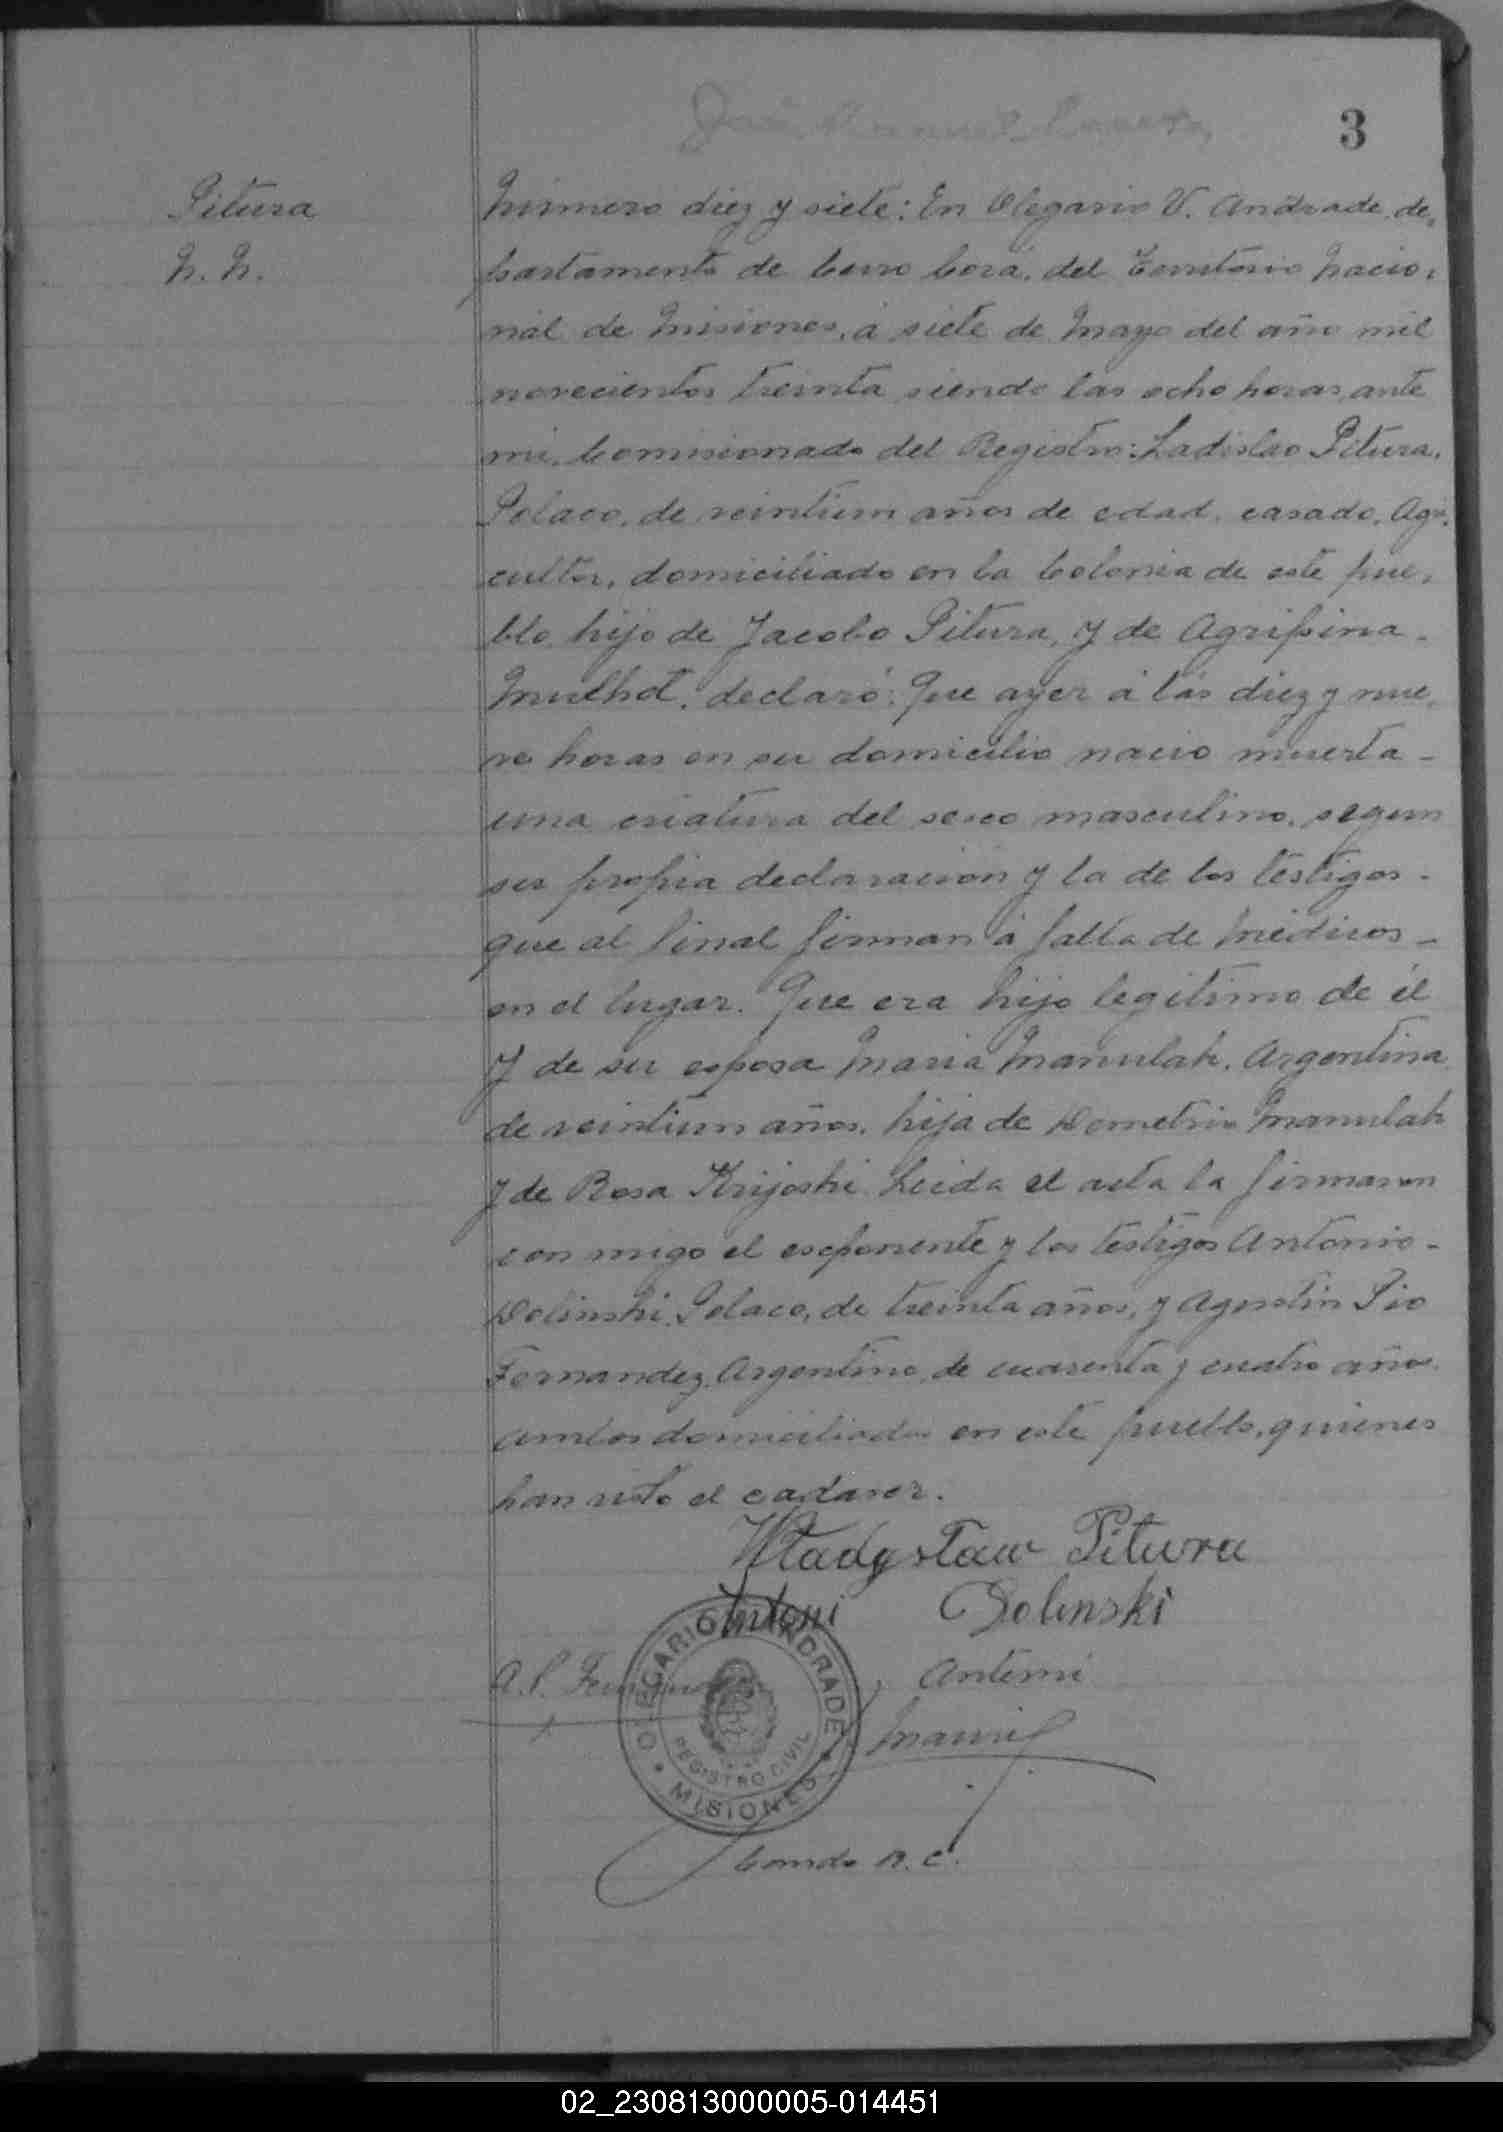 3
Pitura
N. N.
Número diez y siete: En Olegario V. Andrade, de,
partamento de Cerro Corá, del Territorio Nacio,
nal de Misiones, á siete de Mayo del año mil
novecientos treinta siendo las ocho horas, ante
mi, Comisionado del Registro: Ladislao Pitura,
Polaco, de veintiun años de edad, casado, Agri,
cultor, domiciliado en la Colonia de este pue,
blo, hijo de Jacobo Pitura, y de Agripina -
Mulhot, declaró: Que ayer á las diez y nue,
ve horas en su domicilio nacio muerta -
una criatura del sexo masculino, segun
su propia declaración y la de los testigos -
que al final firman á falta de Médicos -
en el lugar. Que era hijo legitimo de él
y de su esposa Maria Manulak, Argentina,
de veintiun años, hija de Demetrio Manulak
y de Rosa Krijoski. Leida el acta la firmaron
con migo el exponente y los testigos Antonio -
Dolinski, Polaco, de treinta años, y Agustin Pio
Fernandez, Argentino, de cuarenta y cuatro años,
ambos domiciliados en este pueblo, quienes
han visto el cadaver.
Władysław Pitura
Antoni Dolinski
A. P. Fernandez
Antemi
OLEGARIO V. ANDRADE
REGISTRO CIVIL
MISIONES
Comdo R. C.
02_230813000005-014451